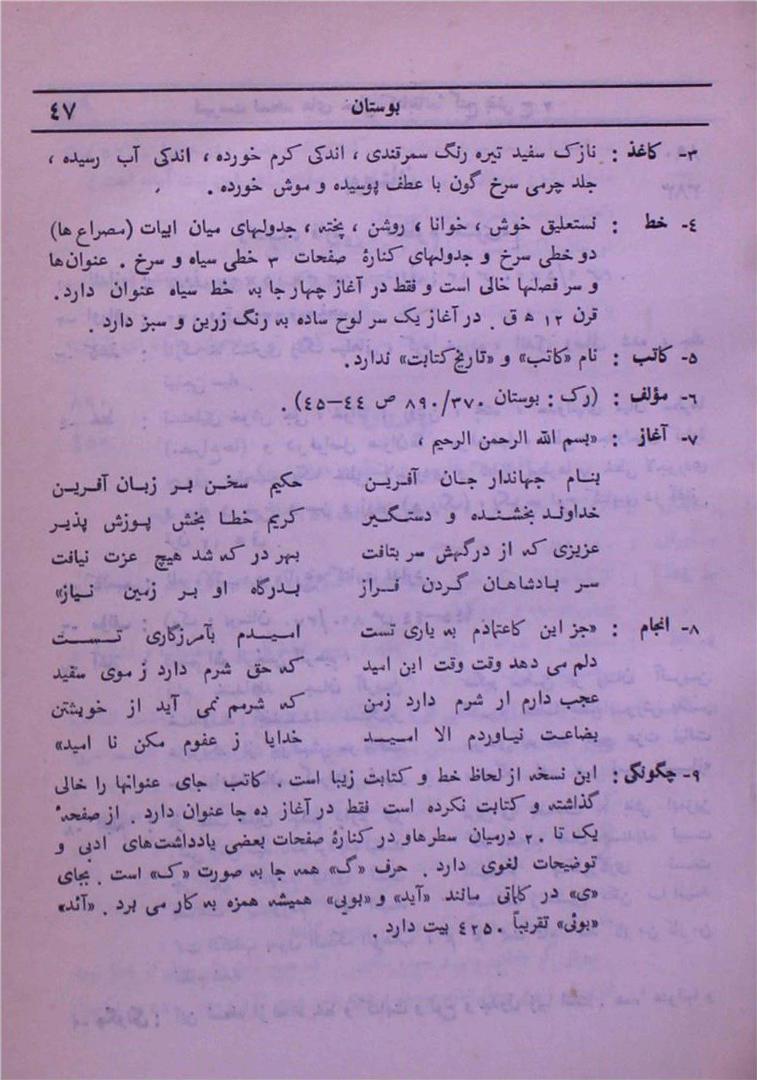 بوستان ٤٧
٣- کاغذ : نازک سفید تیره رنگ سمرقندی ، اندکی کرم خورده ، اندکی آب رسیده ،
جلد چرمی سرخ گون با عطف پوسیده و موش خورده .
٤- خط : نستعلیق خوش ، خوانا ، روشن ، پخته ، جدولهای میان ابیات (مصراع ها)
دو خطی سرخ و جدولهای کنارهٔ صفحات ٣ خطی سیاه و سرخ . عنوان ها
و سر فصلها خالی است و فقط در آغاز چهار جا به خط سیاه عنوان دارد .
قرن ١٢ ه ق . در آغاز یک سر لوح ساده به رنگ زرین و سبز دارد .
٥- کاتب : نام «کاتب» و «تاریخ کتابت» ندارد .
٦- مؤلف : (رک : بوستان ٨٩٠/٣٧٠ ص ٤٤–٤٥) .
٧- آغاز : «بسم الله الرحمن الرحیم ،
بنام جهاندار جان آفرین حکیم سخن بر زبان آفرین
خداوند بخشنده و دستگیر کریم خطا بخش پوزش پذیر
عزیزی که از درگهش سر بتافت بهر در که شد هیچ عزت نیافت
سر بادشاهان گردن فراز بدرگاه او بر زمین نیاز»
٨- انجام : «جز این کاعتمادم به یاری تست امیدم بآمرزگاری تست
دلم می دهد وقت وقت این امید که حق شرم دارد ز موی سفید
عجب دارم ار شرم دارد زمن که شرمم نمی آید از خویشتن
بضاعت نیاوردم الا امید خدایا ز عفوم مکن نا امید»
٩- چگونگی : این نسخه از لحاظ خط و کتابت زیبا است . کاتب جای عنوانها را خالی
گذاشته و کتابت نکرده است فقط در آغاز ده جا عنوان دارد . از صفحهٔ
یک تا ٢٠ درمیان سطرها و در کنارهٔ صفحات بعضی یادداشت های ادبی و
توضیحات لغوی دارد . حرف «گ» همه جا به صورت «ک» است . بجای
«ی» در کلماتی مانند «آید» و «بویی» همیشه همزه به کار می برد . «آئد»
«بوئی» تقریباً ٤٢٥٠ بیت دارد .